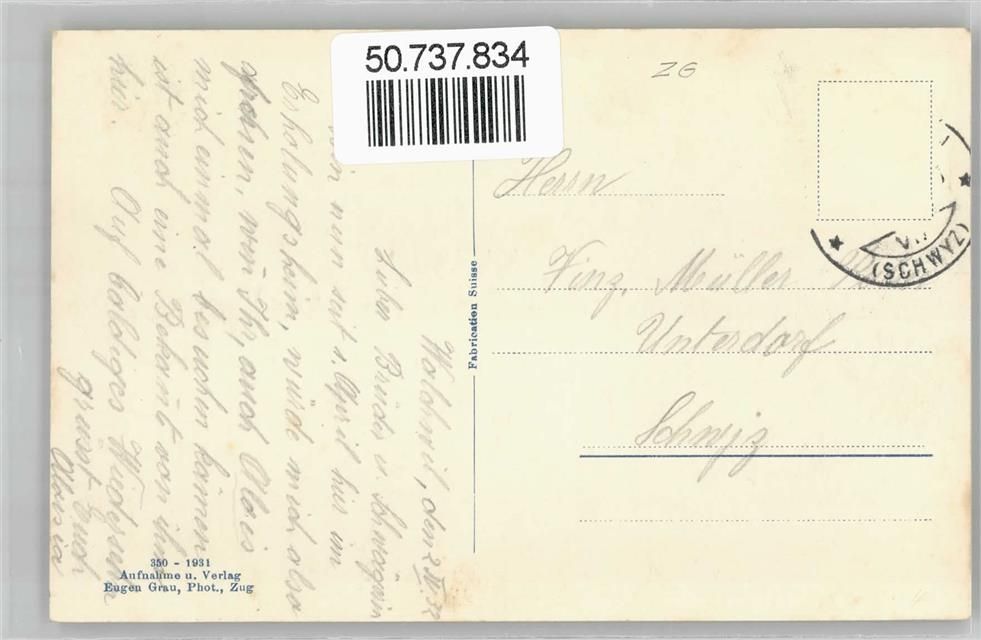 50.737.834
ZG
(SCHWYZ)
Herrn
Vinz. Müller
Unterdorf
Schwyz
Fabrication Suisse
Walchwil, den
Lieber Bruder u. Schwägerin
nun seit 1. April hier im
Erholungsheim, würde mich also
freuen, wen Ihr, auch Alois
mich einmal besuchen kämen
ist auch eine Bekante von ihm
hier. Auf baldiges Wiedersehn
grüsst Euch
Aloisia
350 - 1931
Aufnahme u. Verlag
Eugen Grau, Phot., Zug